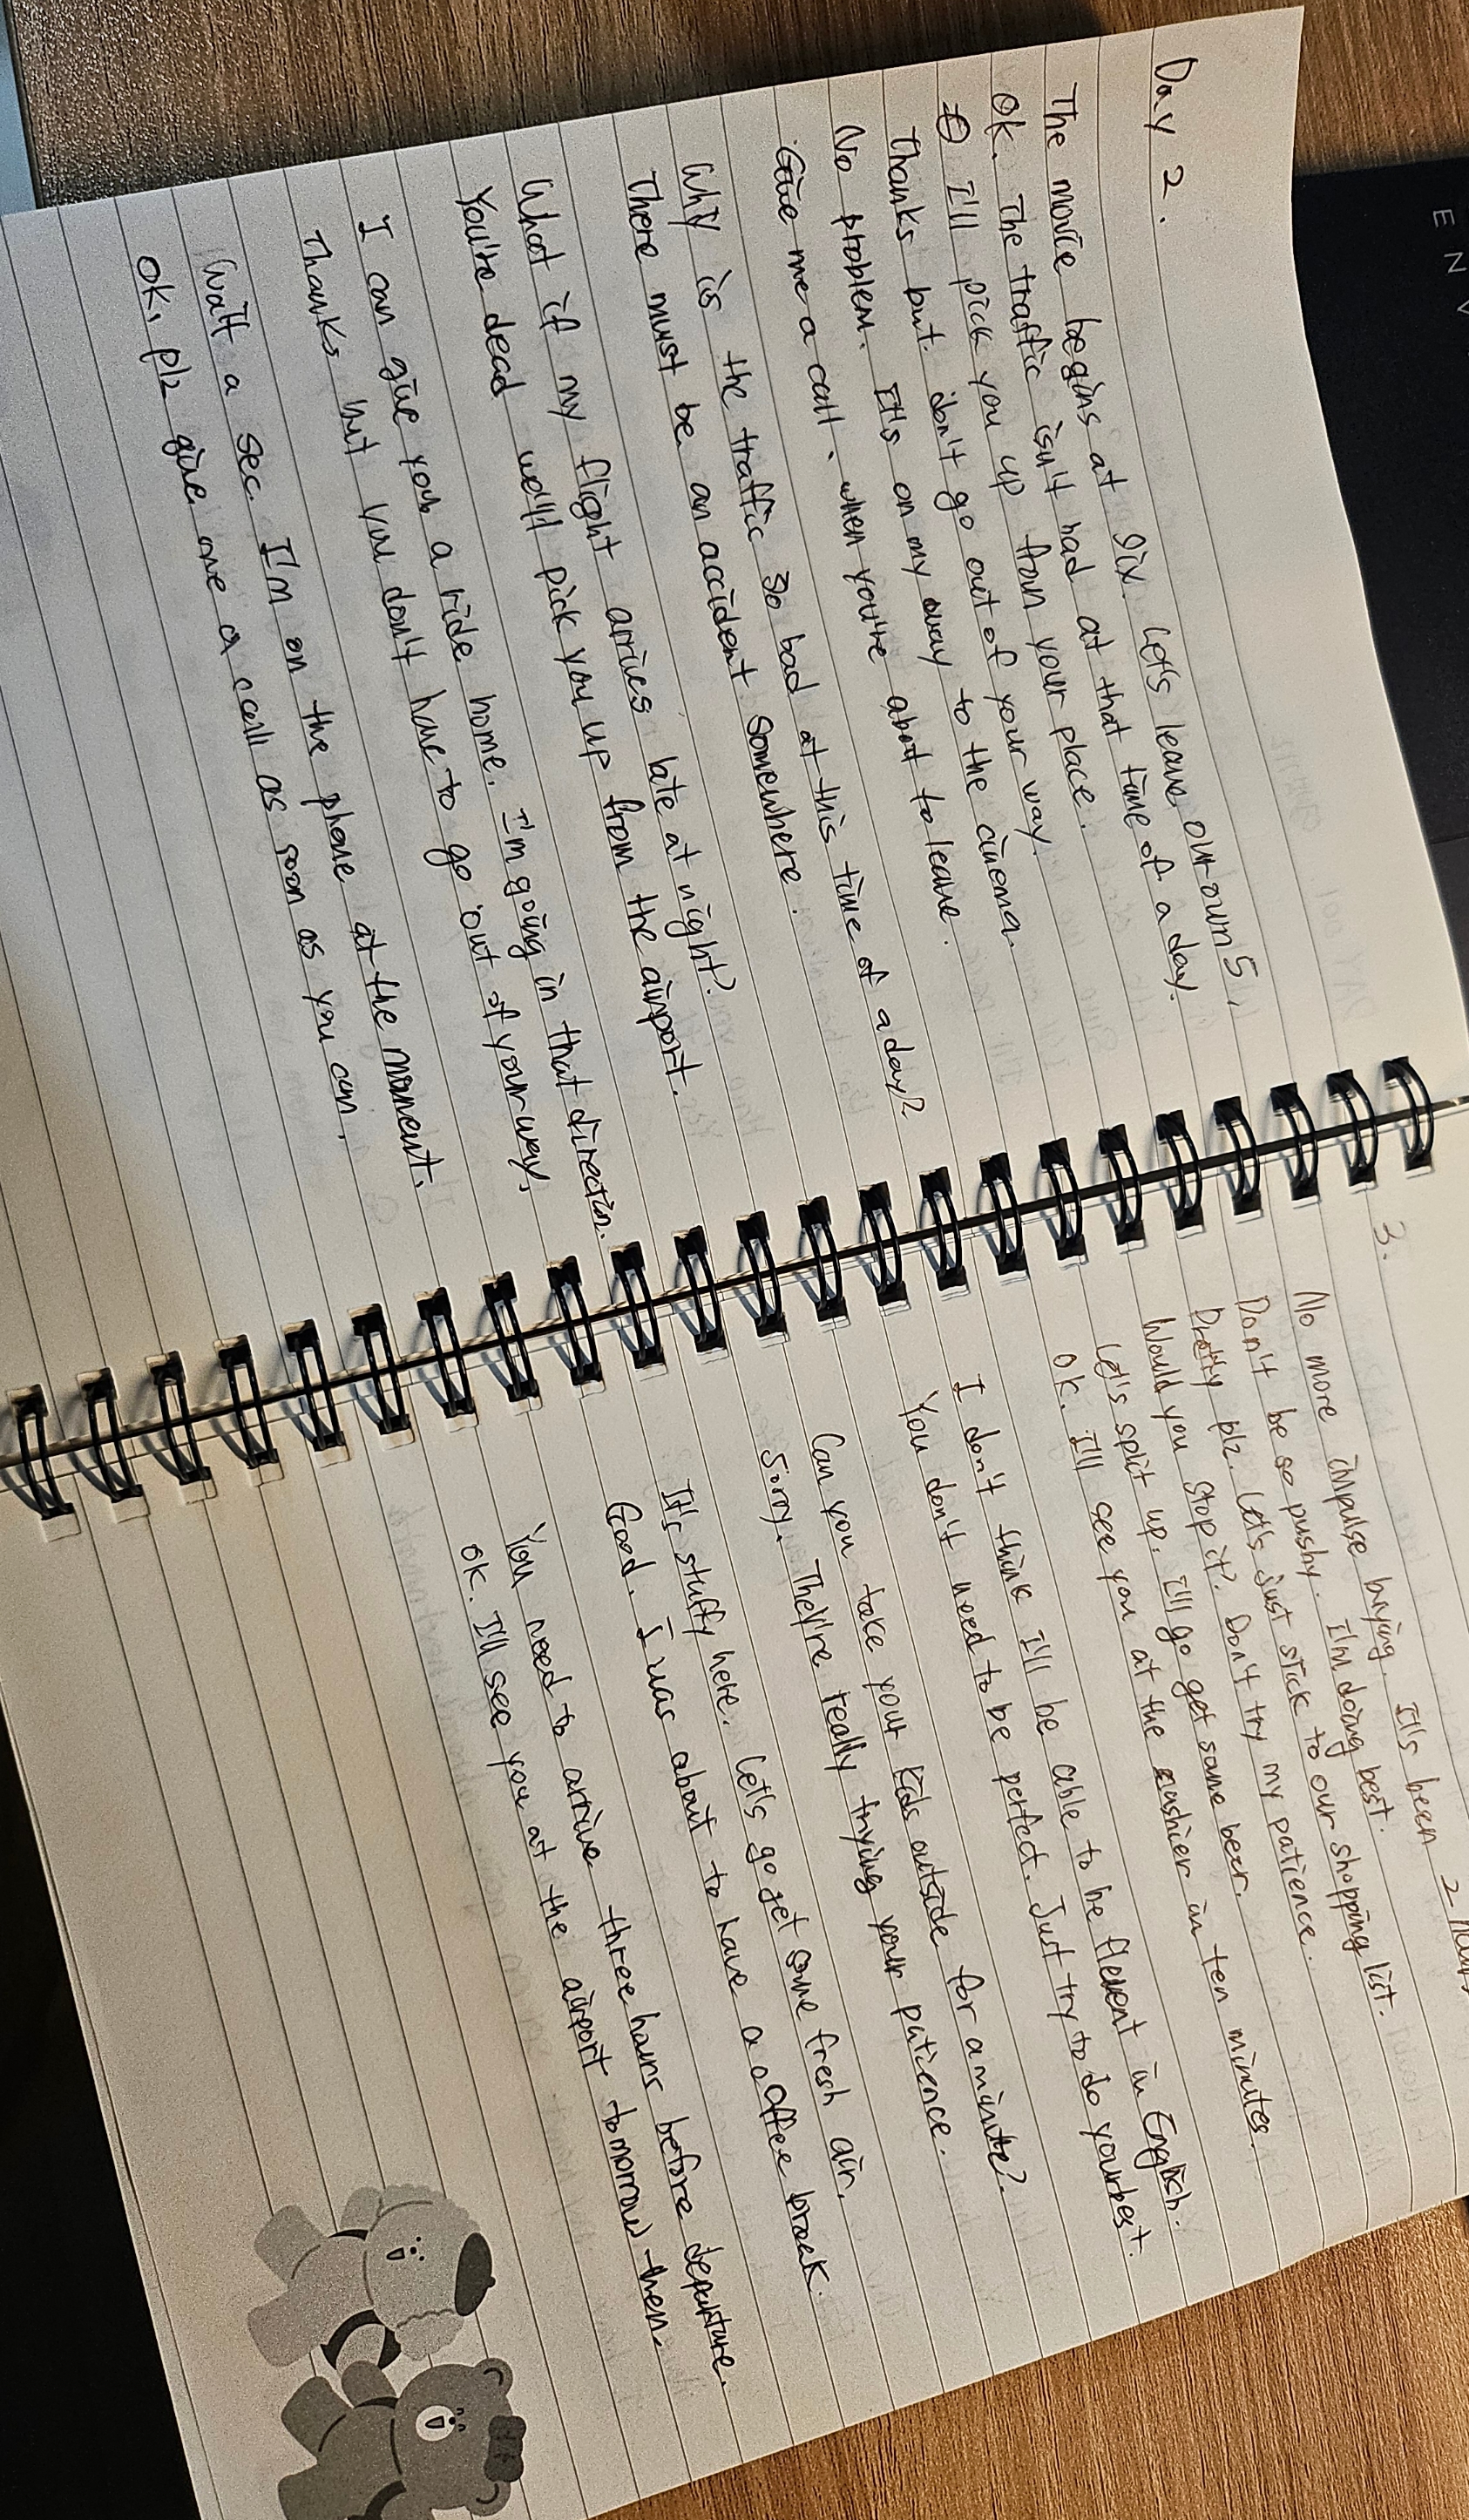 ENV
Day 2.
The movie begins at six. Let's leave our own 5,
Ok. The traffic isn't bad at that time of a day.
I'll pick you up from your place.
Thanks but don't go out of your way.
No problem. It's on my way to the cinema.
Give me a call, when you're about to leave.
Why is the traffic so bad at this time of a day?
There must be an accident somewhere.
What if my flight arrives late at night?
You're dead we'll pick you up from the airport.
I can give you a ride home. I'm going in that directin.
Thanks but you don't have to go out of your way.
Wait a sec. I'm on the phone at the moment.
Ok, plz give me a call as soon as you can.
3.
No more impulse buying. It's been 2 hours
Don't be so pushy. I'm doing best.
Pretty plz. Let's just stick to our shopping list.
Would you stop it? Don't try my patience.
Let's split up. I'll go get some beer.
Ok. I'll see you at the cashier in ten minutes.
I don't think I'll be able to be fluent in English.
You don't need to be perfect. Just try to do your best.
Can you take your kids outside for a minute?
Sorry. They're really trying your patience.
It's stuffy here. Let's go get some fresh air.
Good. I was about to have a coffee break.
You need to arrive three hours before departure.
Ok. I'll see you at the airport tomorrow then.